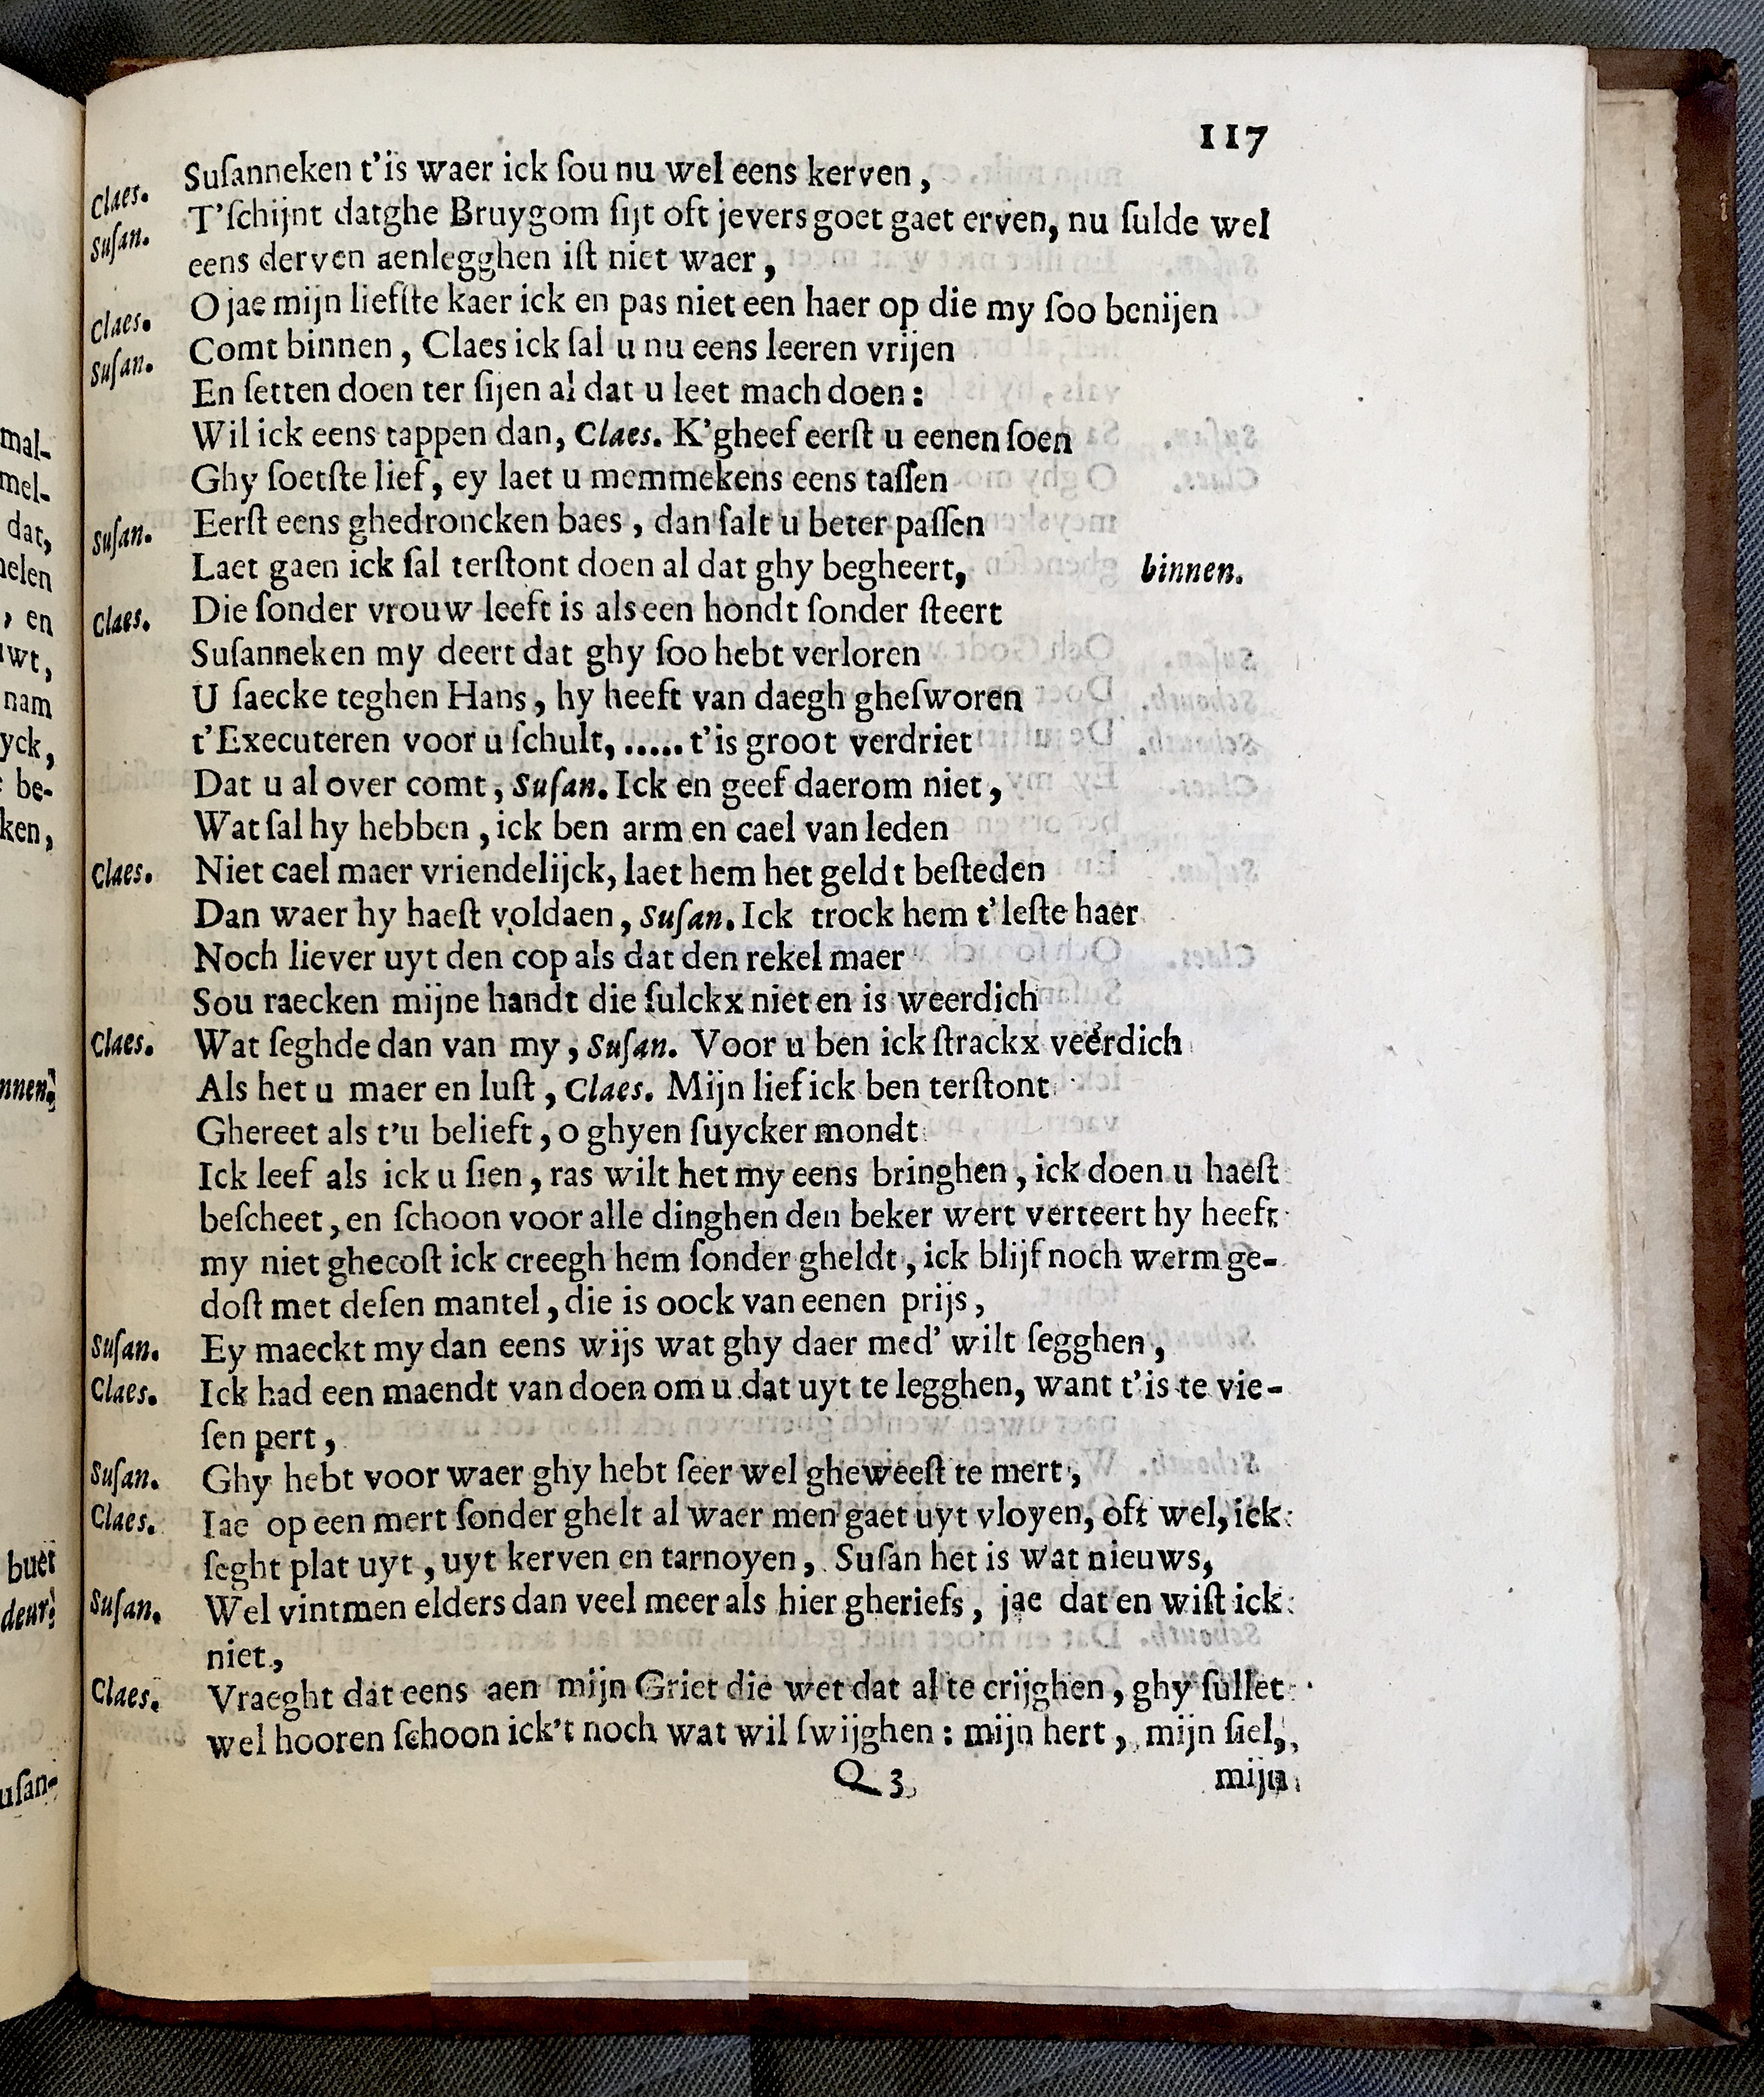 117
Claes. Suſanneken t'is waer ick ſou nu wel eens kerven,
Suſan. T'ſchijnt datghe Bruygom ſijt oft jevers goet gaet erven, nu ſulde wel
eens derven aenlegghen iſt niet waer,
Claes. O jae mijn liefſte kaer ick en pas niet een haer op die my ſoo benijen
Suſan. Comt binnen, Claes ick ſal u nu eens leeren vrijen
En ſetten doen ter ſijen al dat u leet mach doen:
Wil ick eens tappen dan, Claes. K'gheef eerſt u eenen ſoen
Ghy ſoetſte lief, ey laet u memmekens eens taſſen
Suſan. Eerſt eens ghedroncken baes, dan ſalt u beter paſſen
Laet gaen ick ſal terſtont doen al dat ghy begheert, binnen.
Claes. Die ſonder vrouw leeft is als een hondt ſonder ſteert
Suſanneken my deert dat ghy ſoo hebt verloren
U ſaecke teghen Hans, hy heeft van daegh gheſworen
t'Executeren voor u ſchult, ..... t'is groot verdriet
Dat u al over comt, Suſan. Ick en geef daerom niet,
Wat ſal hy hebben, ick ben arm en cael van leden
Claes. Niet cael maer vriendelijck, laet hem het geldt beſteden
Dan waer hy haeſt voldaen, Suſan. Ick trock hem t'leſte haer
Noch liever uyt den cop als dat den rekel maer
Sou raecken mijne handt die ſulckx niet en is weerdich
Claes. Wat ſeghde dan van my, Suſan. Voor u ben ick ſtrackx veerdich
Als het u maer en luſt, Claes. Mijn lief ick ben terſtont
Ghereet als t'u belieft, o ghyen ſuycker mondt
Ick leef als ick u ſien, ras wilt het my eens bringhen, ick doen u haeſt
beſcheet, en ſchoon voor alle dinghen den beker wert verteert hy heeft
my niet ghecoſt ick creegh hem ſonder gheldt, ick blijf noch werm ge-
doſt met deſen mantel, die is oock van eenen prijs,
Suſan. Ey maeckt my dan eens wijs wat ghy daer med' wilt ſegghen,
Claes. Ick had een maendt van doen om u dat uyt te legghen, want t'is te vie-
ſen pert,
Suſan. Ghy hebt voor waer ghy hebt ſeer wel gheweeſt te mert,
Claes. Iae op een mert ſonder ghelt al waer men gaet uyt vloyen, oft wel, ick
ſeght plat uyt, uyt kerven en tarnoyen, Suſan het is wat nieuws,
Suſan. Wel vintmen elders dan veel meer als hier gheriefs, jae dat en wiſt ick
niet,
Claes. Vraeght dat eens aen mijn Griet die wet dat al te crijghen, ghy ſullet
wel hooren ſchoon ick't noch wat wil ſwijghen: mijn hert, mijn ſiel,
Q 3 mijn
mal-
mel-
dat,
elen
, en
wt,
nam
yck,
be-
ken,
nnen
buer
deur
uſan-